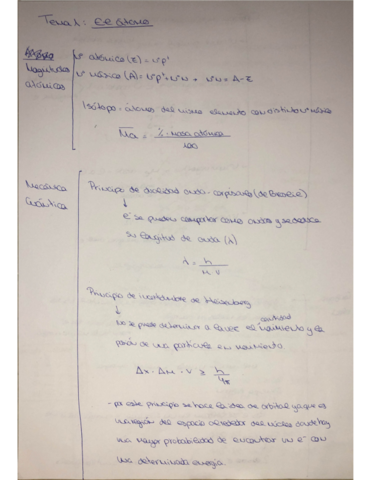 Tema 1: El átomo
Magnitudes atómicas
nº atómico (Z) = nº p⁺
nº másico (A) = nº p⁺ + nº n → nº n = A - Z
Isótopo: átomos del mismo elemento con distinto nº másico
Ma = % · masa atómica / 100
Mecánica Cuántica
Principio de dualidad onda-corpúsculo (de Broglie)
↓
e⁻ se pueden comportar como ondas y se deduce
su longitud de onda (λ)
λ = h / m · v
Principio de incertidumbre de Heisenberg
↓
cantidad
No se puede determinar a la vez el movimiento y la
posición de una partícula en movimiento
Δx · Δm · v ≥ h / 4π
- por este principio se hace la idea de orbital ya que es
una región del espacio alrededor del núcleo donde hay
una mayor probabilidad de encontrar un e⁻ con
una determinada energía.